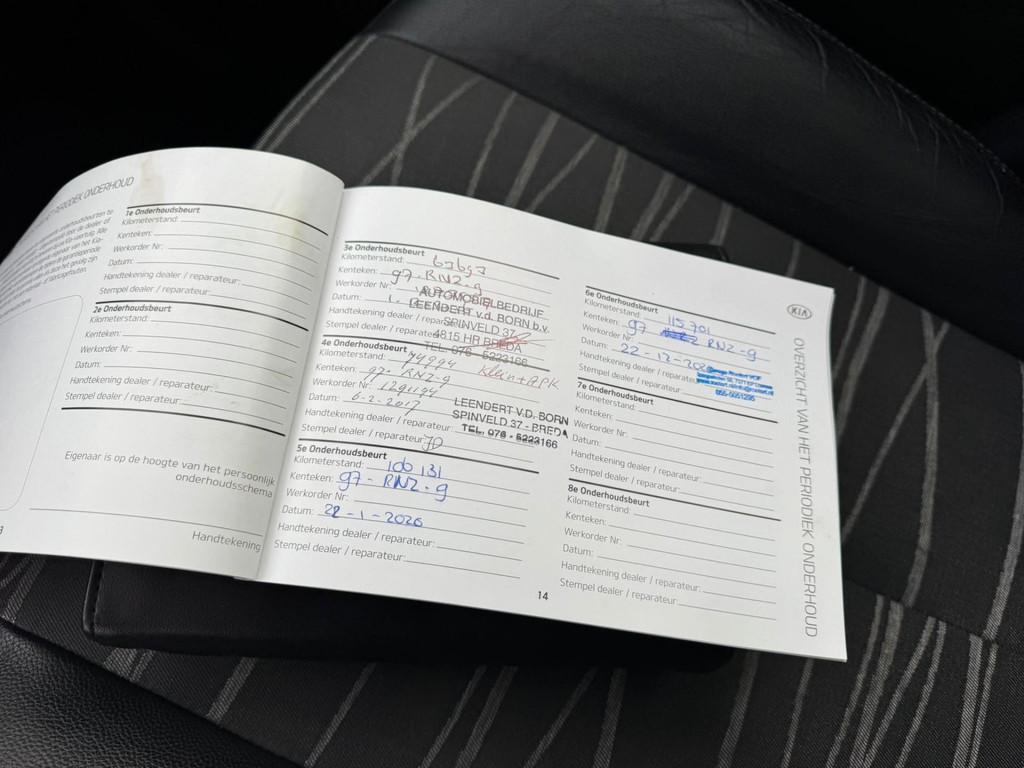 PERIODIEK ONDERHOUD
1e Onderhoudsbeurt
Kilometerstand:
Kenteken:
Werkorder Nr:
Datum:
Handtekening dealer / reparateur:
Stempel dealer / reparateur:
2e Onderhoudsbeurt
Kilometerstand:
Kenteken:
Werkorder Nr:
Datum:
Handtekening dealer / reparateur:
Stempel dealer / reparateur:
Eigenaar is op de hoogte van het persoonlijk
onderhoudsschema
Handtekening
3e Onderhoudsbeurt
Kilometerstand:
Kenteken: 97-RNZ-9
Werkorder Nr:
Datum:
Handtekening dealer / reparateur:
Stempel dealer / reparateur:
AUTOMOBIELBEDRIJF
LEENDERT v.d. BORN b.v.
SPINVELD 37
4815 HR BREDA
TEL. 076 - 5223166
4e Onderhoudsbeurt
Kilometerstand: 74994 Klein+APK
Kenteken: 97-RNZ-9
Werkorder Nr: 1291194
Datum: 6-2-2017
Handtekening dealer / reparateur:
Stempel dealer / reparateur:
LEENDERT V.D. BORN
SPINVELD 37 - BREDA
TEL. 076 - 5223166
5e Onderhoudsbeurt
Kilometerstand: 106 131
Kenteken: 97-RNZ-9
Werkorder Nr:
Datum: 22-1-2020
Handtekening dealer / reparateur:
Stempel dealer / reparateur:
14
6e Onderhoudsbeurt
Kilometerstand: 115 701
Kenteken: 97 RNZ-9
Werkorder Nr:
Datum: 22-12-2020
Handtekening dealer / reparateur:
Stempel dealer / reparateur:
7e Onderhoudsbeurt
Kilometerstand:
Kenteken:
Werkorder Nr:
Datum:
Handtekening dealer / reparateur:
Stempel dealer / reparateur:
8e Onderhoudsbeurt
Kilometerstand:
Kenteken:
Werkorder Nr:
Datum:
Handtekening dealer / reparateur:
Stempel dealer / reparateur:
KIA
OVERZICHT VAN HET PERIODIEK ONDERHOUD